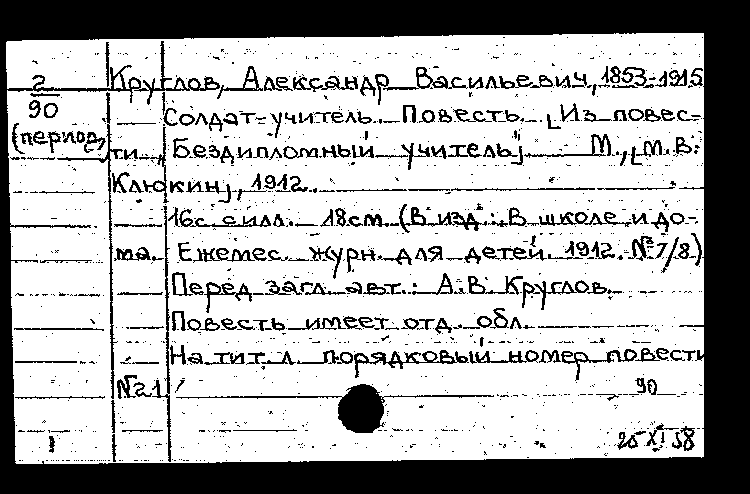 Г
90
(период,
Круглов, Александр Васильевич, 1853-1915
Солдат-учитель. Повесть. [Из повес-
ти „Бездипломный учитель"] М., [М.В.
Клюкин], 1912.
16с. с илл. 18см. (В изд.: В школе и до-
ма. Ежемес. журн. для детей. 1912. №7/8)
Перед загл. авт.: А.В. Круглов.
Повесть имеет отд. обл.
На тит. л. порядковый номер повести
№21.
90
25 XI 58